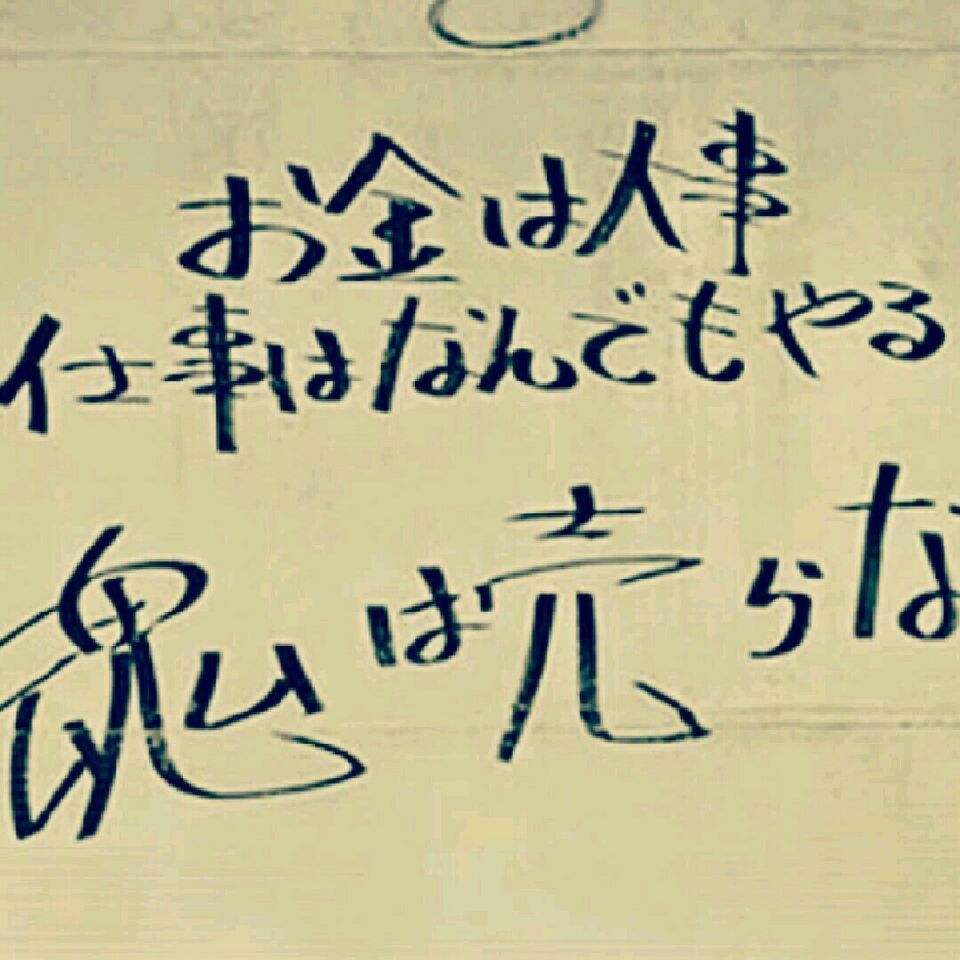 お金は人事
仕事はなんでもやる
魂は売らな